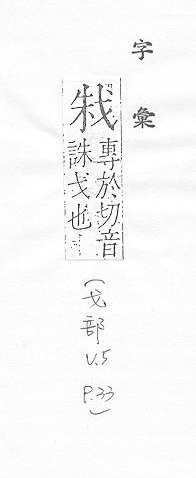 字彙
專於切音
誅戈也
(戈部 V.5 P.33)